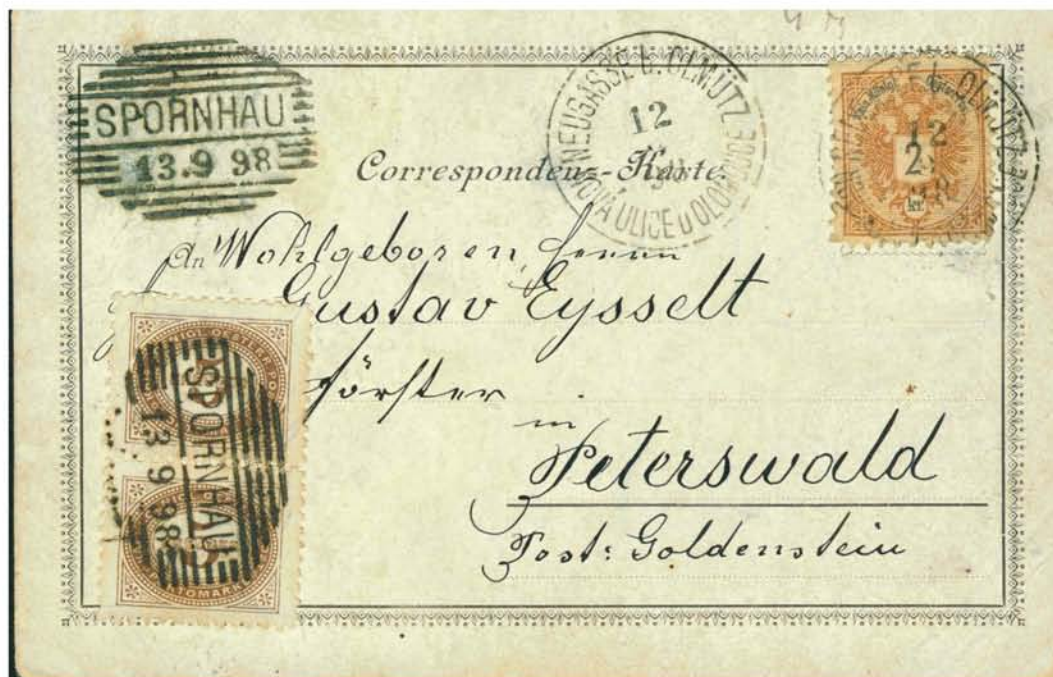 SPORNHAU
13.9 98
NEUGASSE b. OLMÜTZ
12
NOVÁ ULICE u OLOMOUCE
OLMÜTZ
12
2
kr.
Correspondenz-Karte.
An Wohlgeboren Herrn
Gustav Eysselt
Förster
in
Peterswald
Post: Goldenstein
SPORNHAU
13 9 98
5
PORTOMARKE